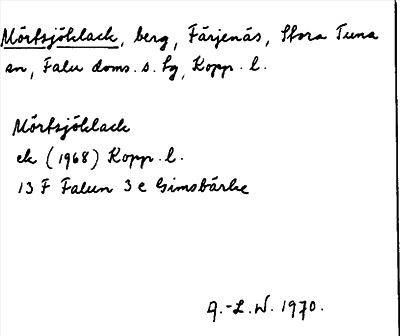 Mörtsjöklack, berg, Färjenäs, Stora Tuna
sn, Falu doms. s. tg, Kopp. l.
Mörtsjöklack
ek (1968) Kopp. l.
13 F Falun 3 e Gimsbärke
A.-L.W. 1970.